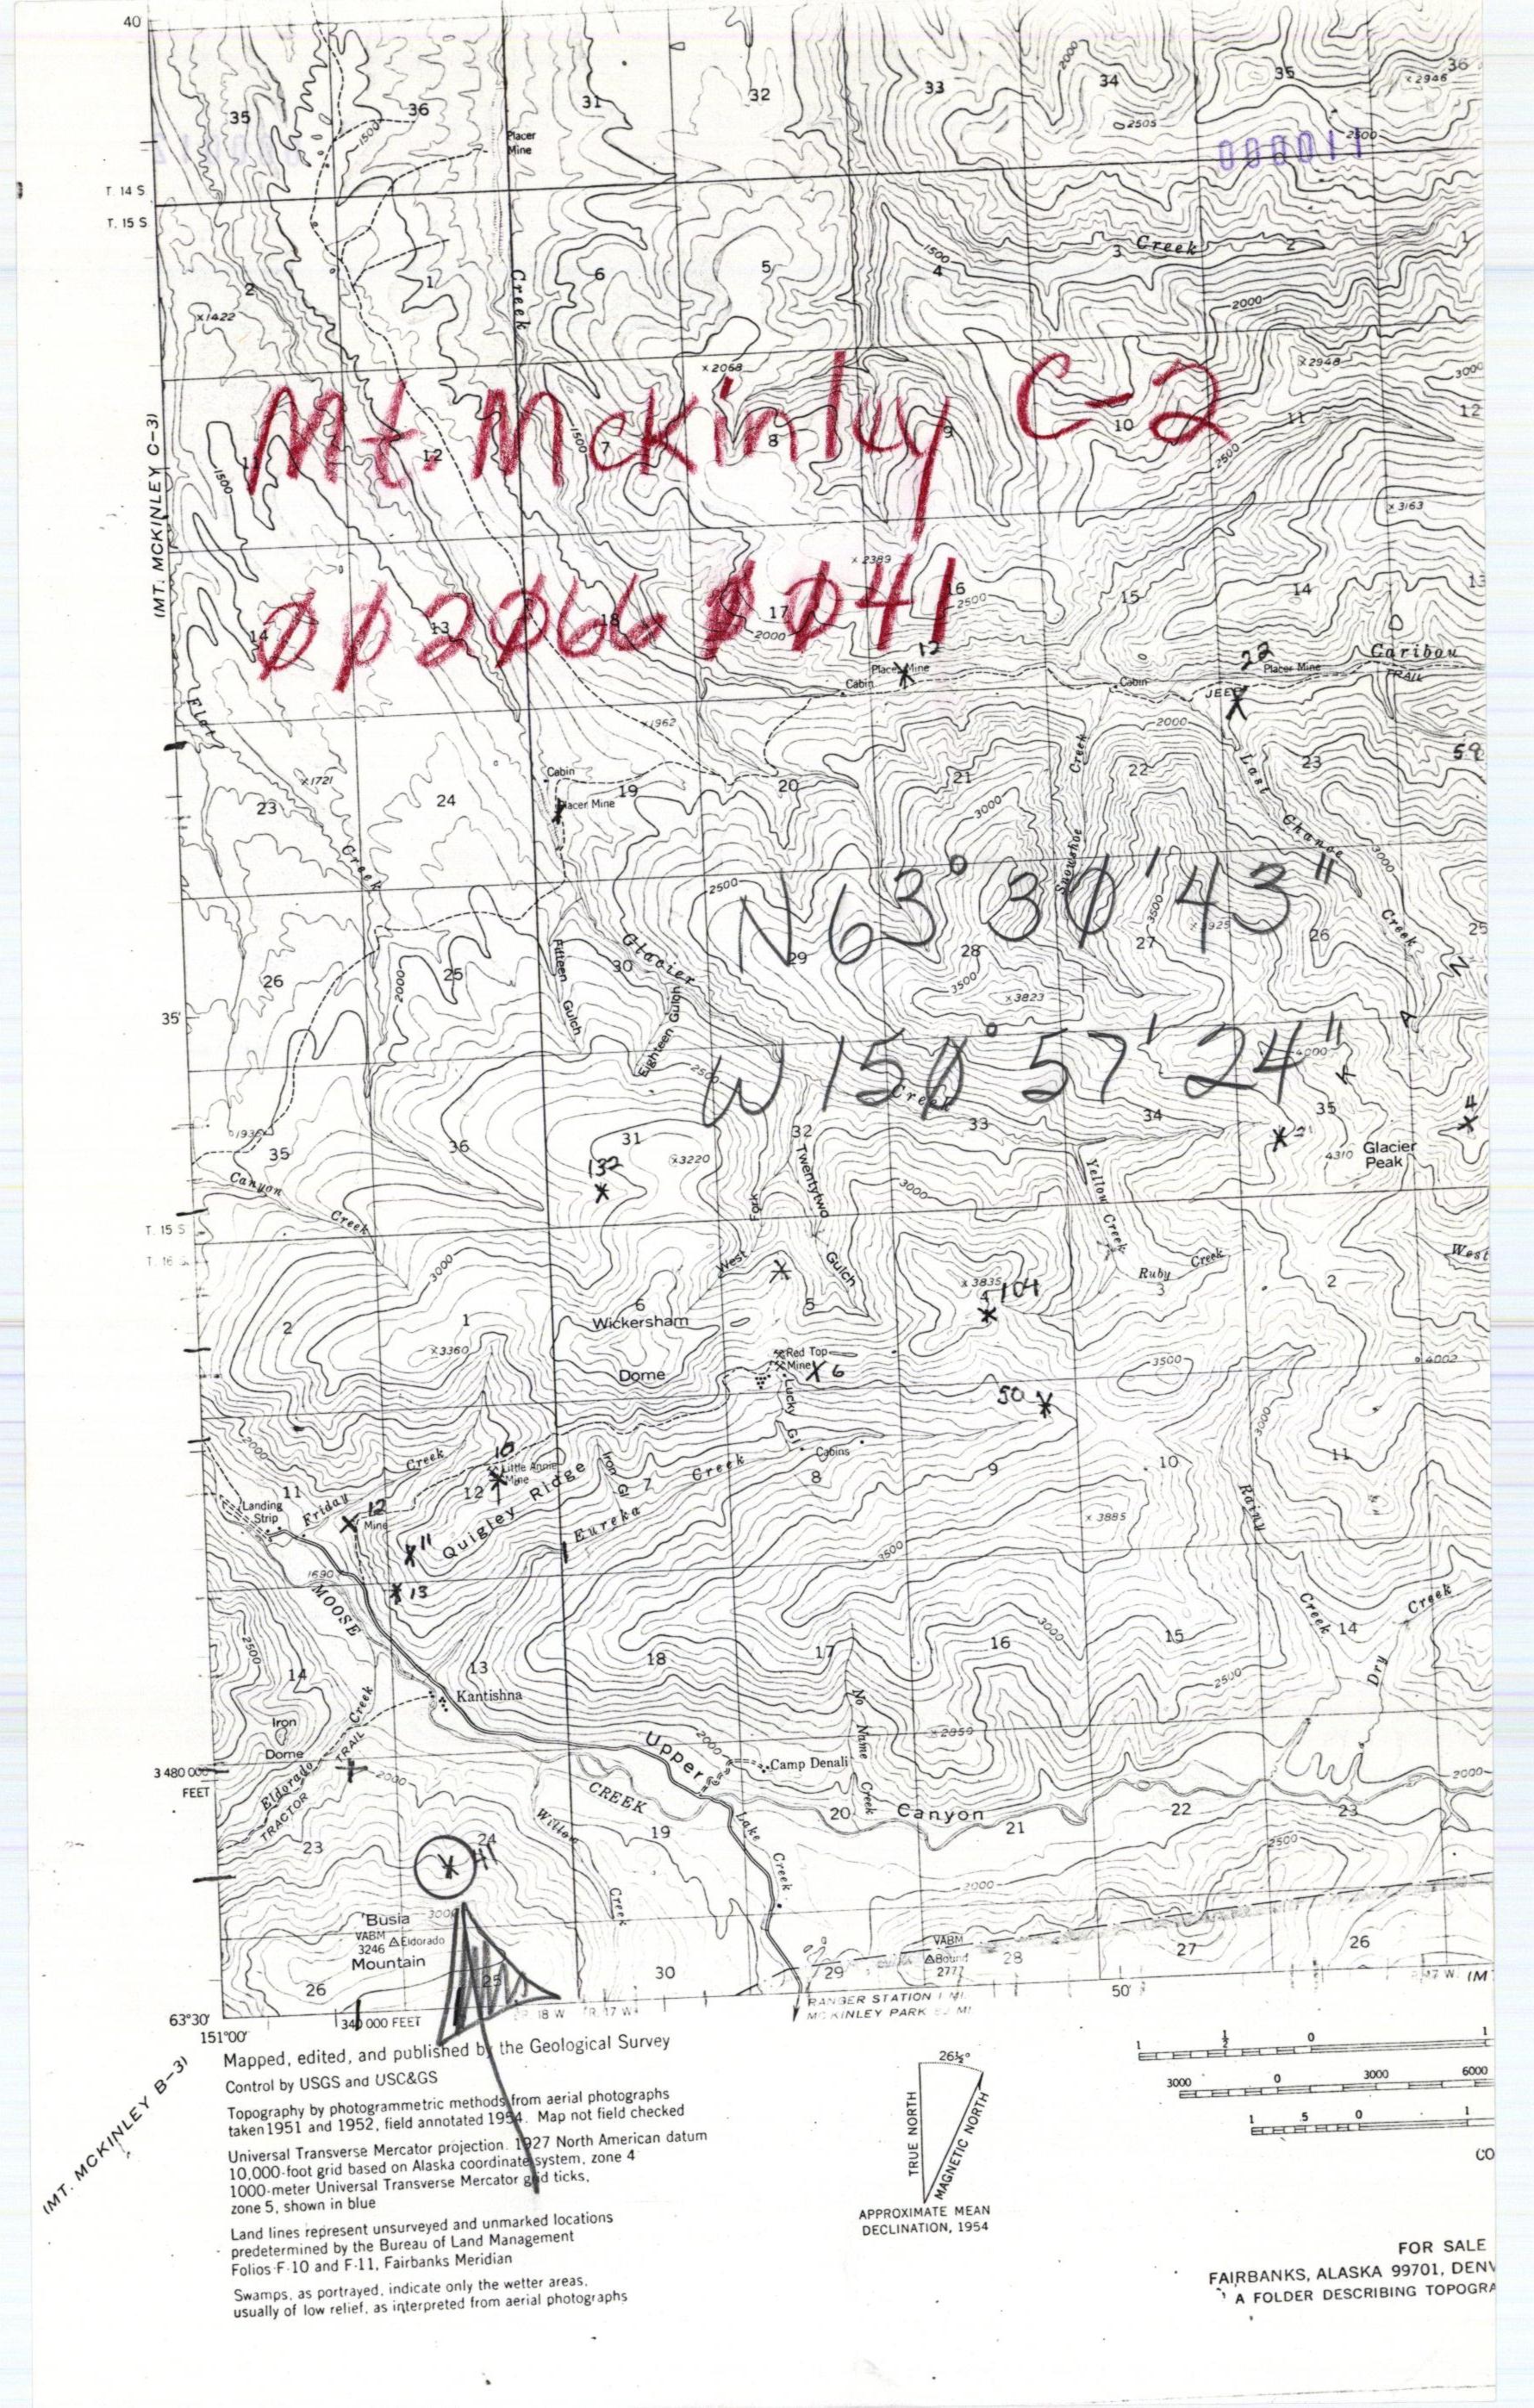 40
35
36
31
32
33
34
35
36
2000
x 2946
1500
Placer
Mine
2505
2500
000011
T. 14 S
T. 15 S
2
1
Creek
6
5
1500
4
3 Creek 2
1
x1422
2000
x 2068
x 2948
3000
Mt. Mckinley C-2
(MT. MCKINLEY C-3)
11
12
1500
7
8
9
10
11
12
1500
2500
x 3163
x 2389
002066 0041
14
13
18
17
16
15
14
13
2500
2000
12
22
Placer Mine
Placer Mine
Caribou
Cabin
Cabin
JEEP
TRAIL
Flat
x1962
2000
Creek
59
x1721
Cabin
Placer Mine
23
24
19
20
21
22
23
Last
Chance
Creek
3000
3000
Creek
Snowshoe
N 63° 30' 43"
2500
3500
x3925
26
25
30
29
28
27
26
25
2000
Fifteen
Gulch
Glacier
Eighteen Gulch
3500
x3823
35'
W 150° 57' 24"
2500
Creek
4000
1935
35
36
31
32
33
34
35
21
4
132
x3220
4310
Glacier
Peak
Canyon
Creek
West Fork
Twentytwo
Gulch
3000
Yellow Creek
T. 15 S
T. 16 S
3000
x 3835
104
Ruby Creek
West
2
1
6
5
3
2
Wickersham
Dome
x3360
Red Top
Mine
6
3500
4002
50
Lucky Gl
2000
Creek
10
Little Annie
Mine
Iron Gl
Cabins
3000
11
12
7
Creek
8
9
10
11
Landing
Strip
Friday
12
Mine
Quigley Ridge
Eureka
x 3885
Rainy
11
3500
1690
13
MOOSE
2500
3000
Creek
Creek
14
13
18
17
16
15
14
2500
Dry
Kantishna
Iron
Dome
Creek
No Name
Creek
x 2859
Upper
2000
Camp Denali
3 480 000
FEET
Eldorado
TRACTOR
TRAIL
2000
CREEK
2000
Willow
Creek
Lake
Creek
20
Canyon
21
22
23
23
24
41
19
2500
2000
Busia
3000
VABM
3246
Eldorado
Mountain
VABM
Bound
2777
26
25
30
29
28
27
26
63°30'
151°00'
340 000 FEET
R. 18 W
R. 17 W
RANGER STATION 1 MI.
MCKINLEY PARK 82 MI
50'
(M
(MT. MCKINLEY B-3)
Mapped, edited, and published by the Geological Survey
Control by USGS and USC&GS
Topography by photogrammetric methods from aerial photographs
taken 1951 and 1952, field annotated 1954. Map not field checked
Universal Transverse Mercator projection. 1927 North American datum
10,000-foot grid based on Alaska coordinate system, zone 4
1000-meter Universal Transverse Mercator grid ticks,
zone 5, shown in blue
Land lines represent unsurveyed and unmarked locations
predetermined by the Bureau of Land Management
Folios F-10 and F-11, Fairbanks Meridian
Swamps, as portrayed, indicate only the wetter areas,
usually of low relief, as interpreted from aerial photographs
26½°
TRUE NORTH
MAGNETIC NORTH
APPROXIMATE MEAN
DECLINATION, 1954
1 ½ 0 1
3000 0 3000 6000
1 .5 0 1
CO
FOR SALE
FAIRBANKS, ALASKA 99701, DENV
A FOLDER DESCRIBING TOPOGRA